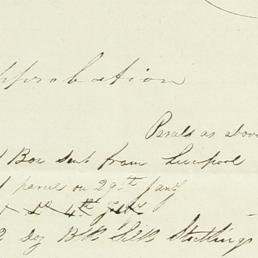 pprobation
Parcels as above
1 Box sent from Liverpool
1 parcel on 29th Jany
1 Do 4th Feby
2 doz Blk Silk Stockings